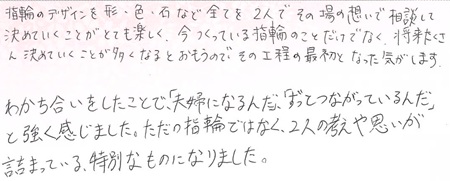 指輪のデザインを形・色・石など全てを2人でその場の想いで相談して
決めていくことがとても楽しく、今つくっている指輪のことだけでなく、将来たくさ
ん決めていくことが多くなるとおもうのでその工程の最初となった気がします。
わかち合いをしたことで、「夫婦になるんだ」、「ずっとつながっているんだ」
と強く感じました。ただの指輪ではなく、2人の考えや思いが
詰まっている、特別なものになりました。